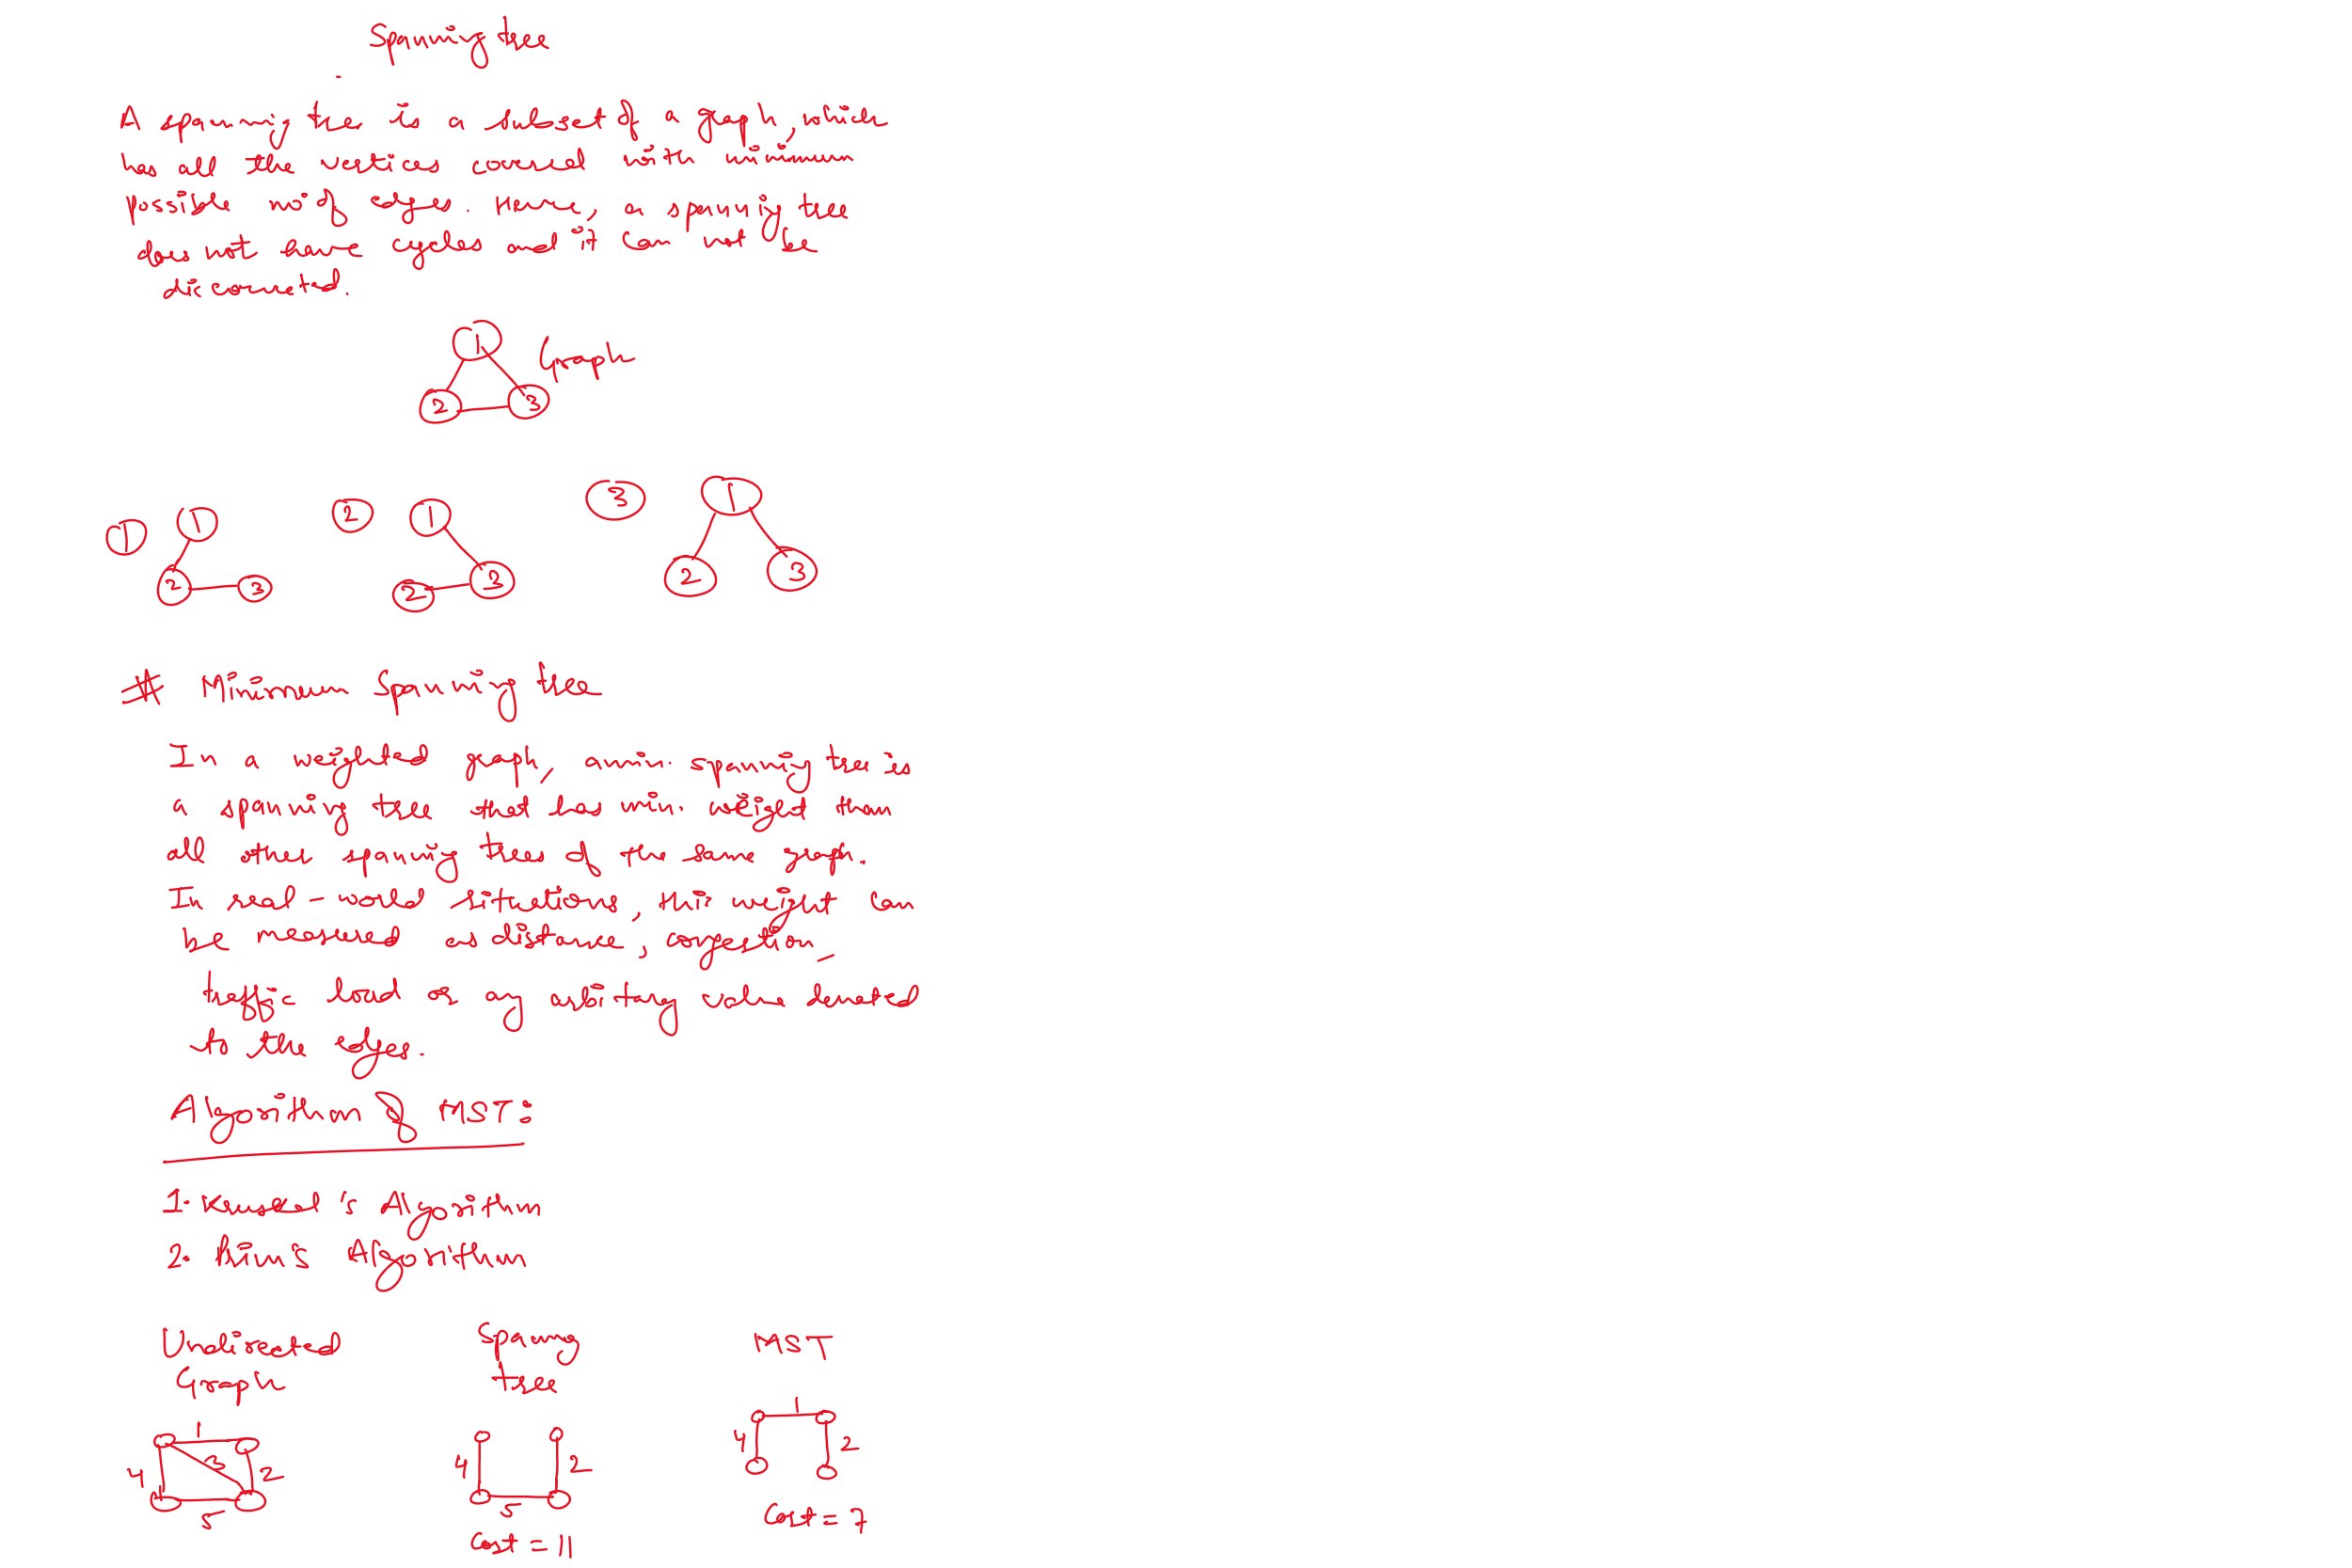 Spanning tree
A spanning tree is a subset of a graph, which
has all the vertices covered with minimum
possible no. of edges. Hence, a spanning tree
does not have cycles and it can not be
disconnected.
1 Graph
2 3
1 1 2 1 3 1
2 3 2 3 2 3
# Minimum Spanning tree
In a weighted graph, a min. spanning tree is
a spanning tree that has min. weight than
all other spanning trees of the same graph.
In real-world situations, this weight can
be measured as distance, congestion,
traffic load or any arbitrary value denoted
to the edges.
Algorithm of MST:
1. Kruskal's Algorithm
2. Prim's Algorithm
Undirected Spanning MST
Graph tree
1 1
4 3 2 4 2 4 2
5 5
Cost = 11 Cost = 7